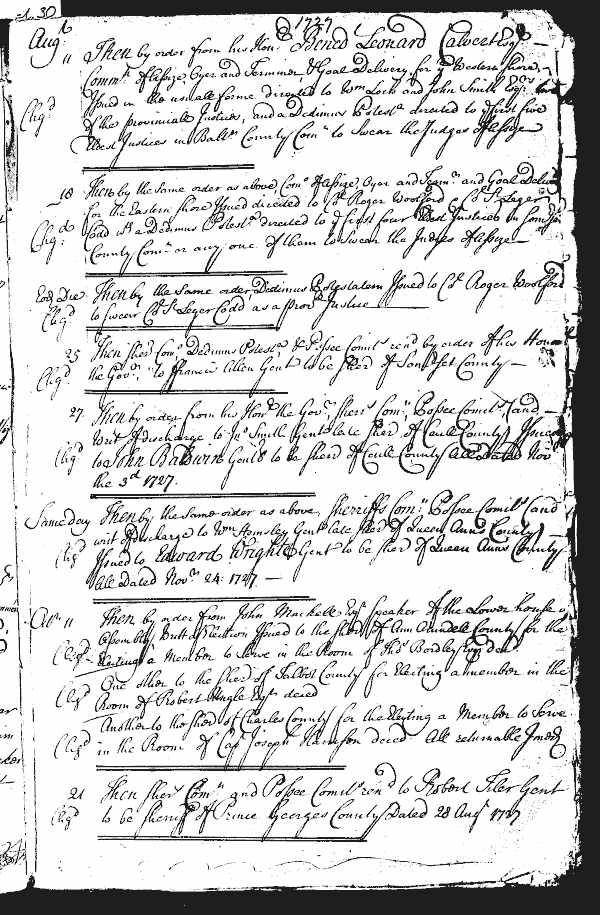 1. 30
1727
Augt " Then by order from his Honr Bened Leonard Calvert Esqr —
Comn of Assize, Oyer and Terminer & Goal Delivery for ye Western Shore,
Issued in the usuall forme directed to Wm Lock and John Smith Esqrs
Chgd of the provinciale Justices, and a Dedimus Potesta directed to ye first five
Best Justices in Baltre County Comn to Swear the Judges of Assize
18 Then by the Same order as above, Comn of Assize, Oyer and Termr and Goal Deliv
for the Eastern Shore Issued directed to Col Roger Woolford & Col St Leger
Chgd Codd wth a Dedimus Potesta directed to ye first four Best Justices in
County Comn or any one of them to Swear the Judges of Assize —
Eod Die Then by the Same order, Dedimus Potestatem Issued to Col Roger Woolford
Chgd to Swear Col St Leger Codd as a Prov Justice
25 Then Sher Comn Dedimus Potesta & Possee Comits rend by order of his Honr
Chgd the Govr to Francis Allen Gent to be Sher of Somrset County —
27 Then by order from his Honr the Govr, Shers Comn, Possee Comits and —
writ of discharge to Jno Smith Gent late Sher of Cecill County Issued
Chgd to John Baldwin Gent to be Sher of Cecill County All Dated Novr
the 3d 1727.
Same day Then by the Same order as above, Sherriffs Comn Possee Comits and
writ of discharge to Wm Hemsley Gent late Sher of Queen Anns County
Chgd Issued to Edward Wright Gent to be Sher of Queen Anns County
All Dated Novr 24. 1727. —
" Then by order from John Mackall Esqr Speaker of the Lower house of
Assembly, writ of Election Issued to the Sher of Ann Arundell County for the
Chgd Electing a Member to Serve in the Room of Thos Bordley Esqr decd
One other to the Sher of Talbot County for Electing a member in the
Chgd Room of Robert Ungle Esqr deced
Another to the Sher of Charles County for the Electing a Member to Serve
Chgd in the Room of Capt Joseph Harrison deced. All returnable Imed
21 Then Shers Comn and Possee Comits rend to Robert Tiler Gent
Chgd to be Sherriff of Prince Georges County Dated 28 Augt 1727